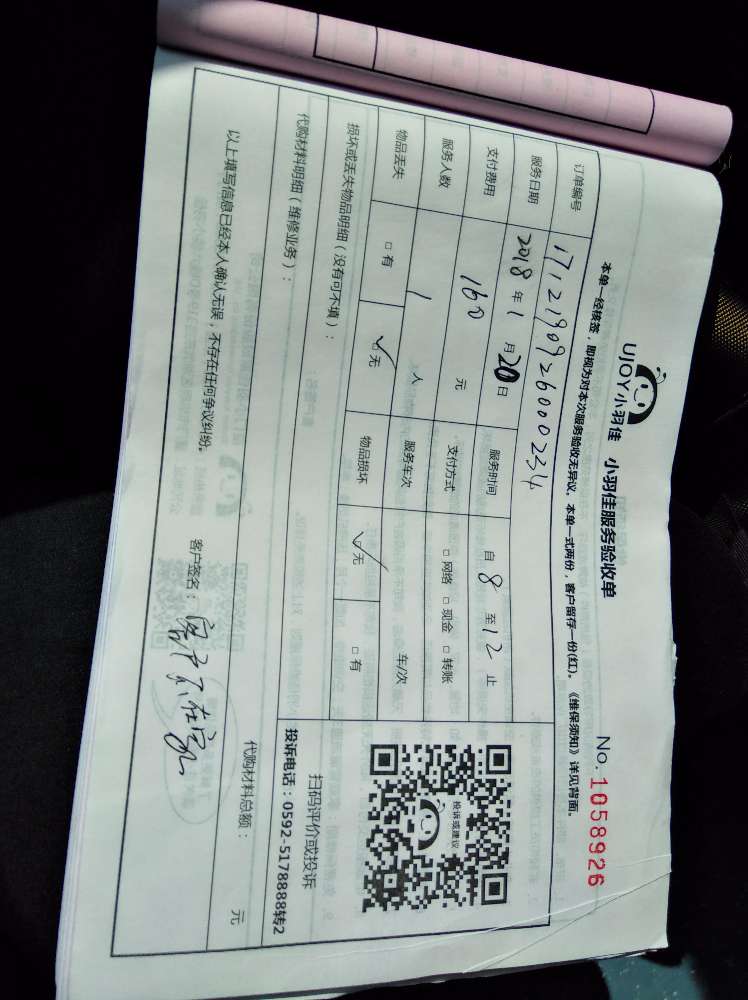 UJOY小羽佳 小羽佳服务验收单
No.1058926
本单一经核签，即视为对本次服务验收无异议。本单一式两份，客户留存一份(红)。《维保须知》详见背面。
订单编号 17121909260002334
服务日期 2018年1月20日 服务时间 自8至12止
支付费用 160元 支付方式 □网络 □现金 □转账
服务人数 1人 服务车次 车/次
物品丢失 □有 ✓无 物品损坏 ✓无 □有
损坏或丢失物品明细（没有可不填）：
代购材料明细（维修业务）：
代购材料总额： 元
投诉或建议
扫码评价或投诉
投诉电话：0592-5178888转2
以上填写信息已经本人确认无误，不存在任何争议纠纷。
客户签名：客户不在家